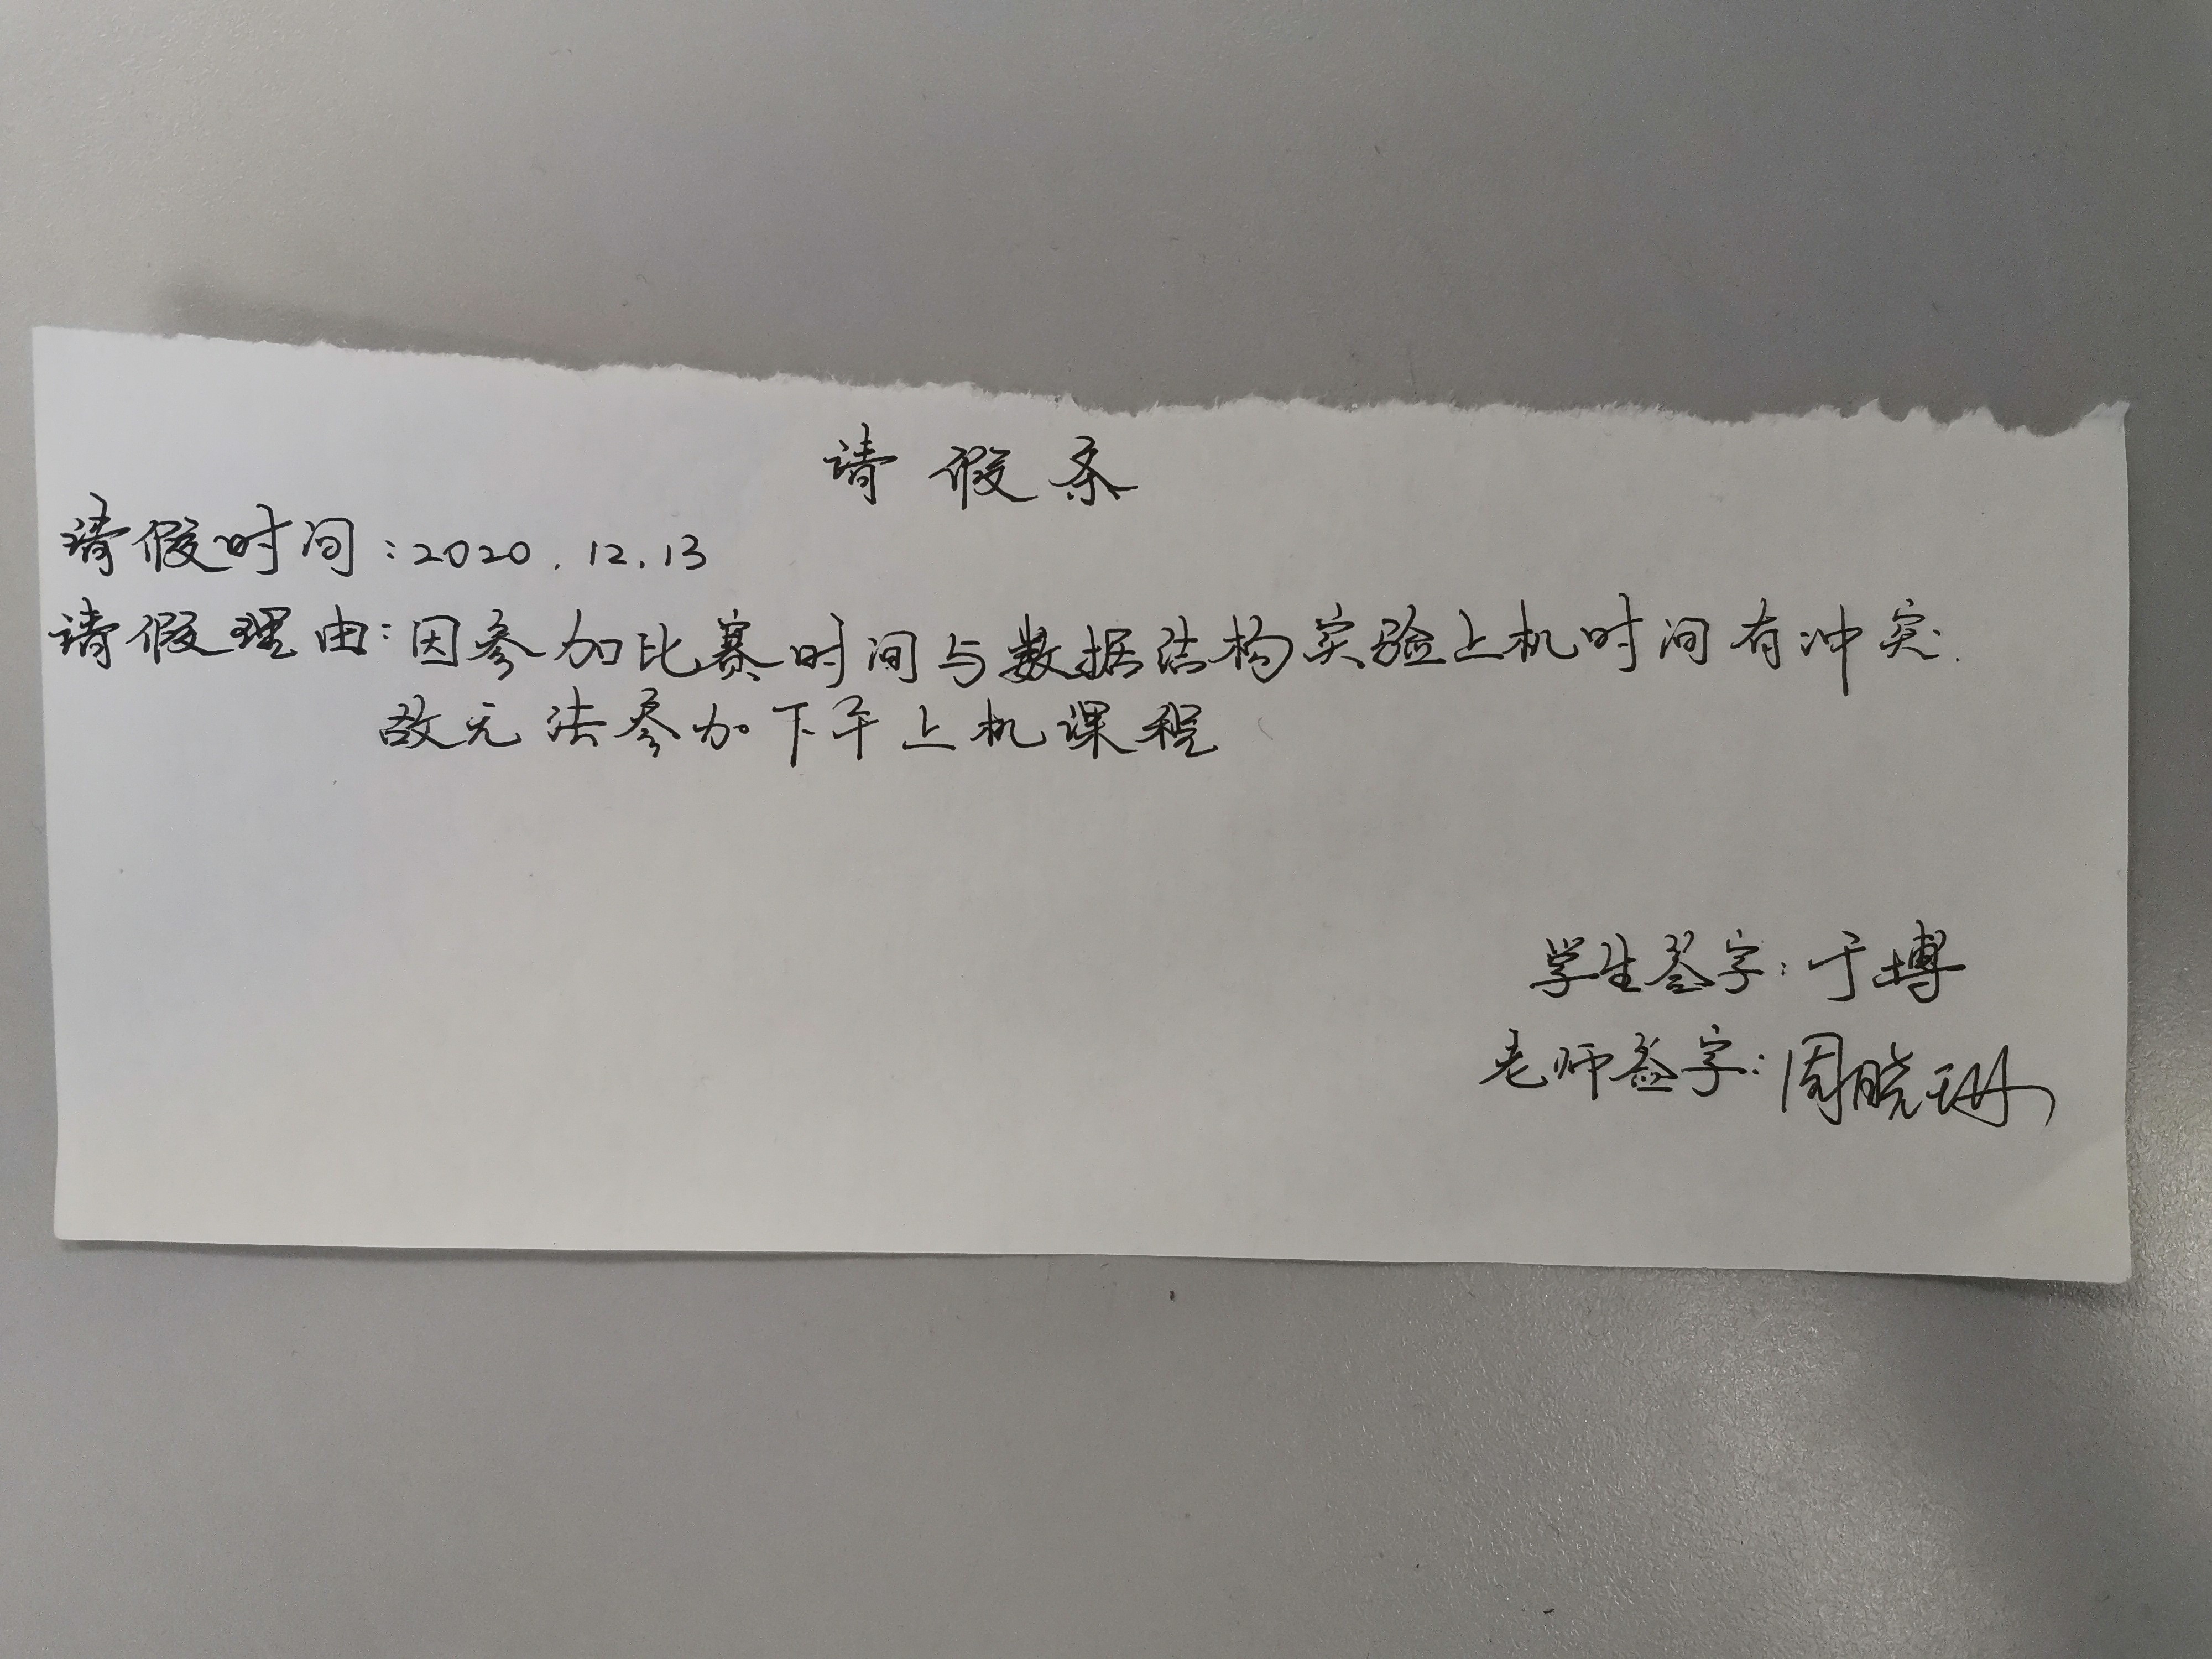 请假条
请假时间:2020.12.13
请假理由:因参加比赛时间与数据结构实验上机时间有冲突.
故无法参加下午上机课程
学生签字:于博
老师签字:周晓琳